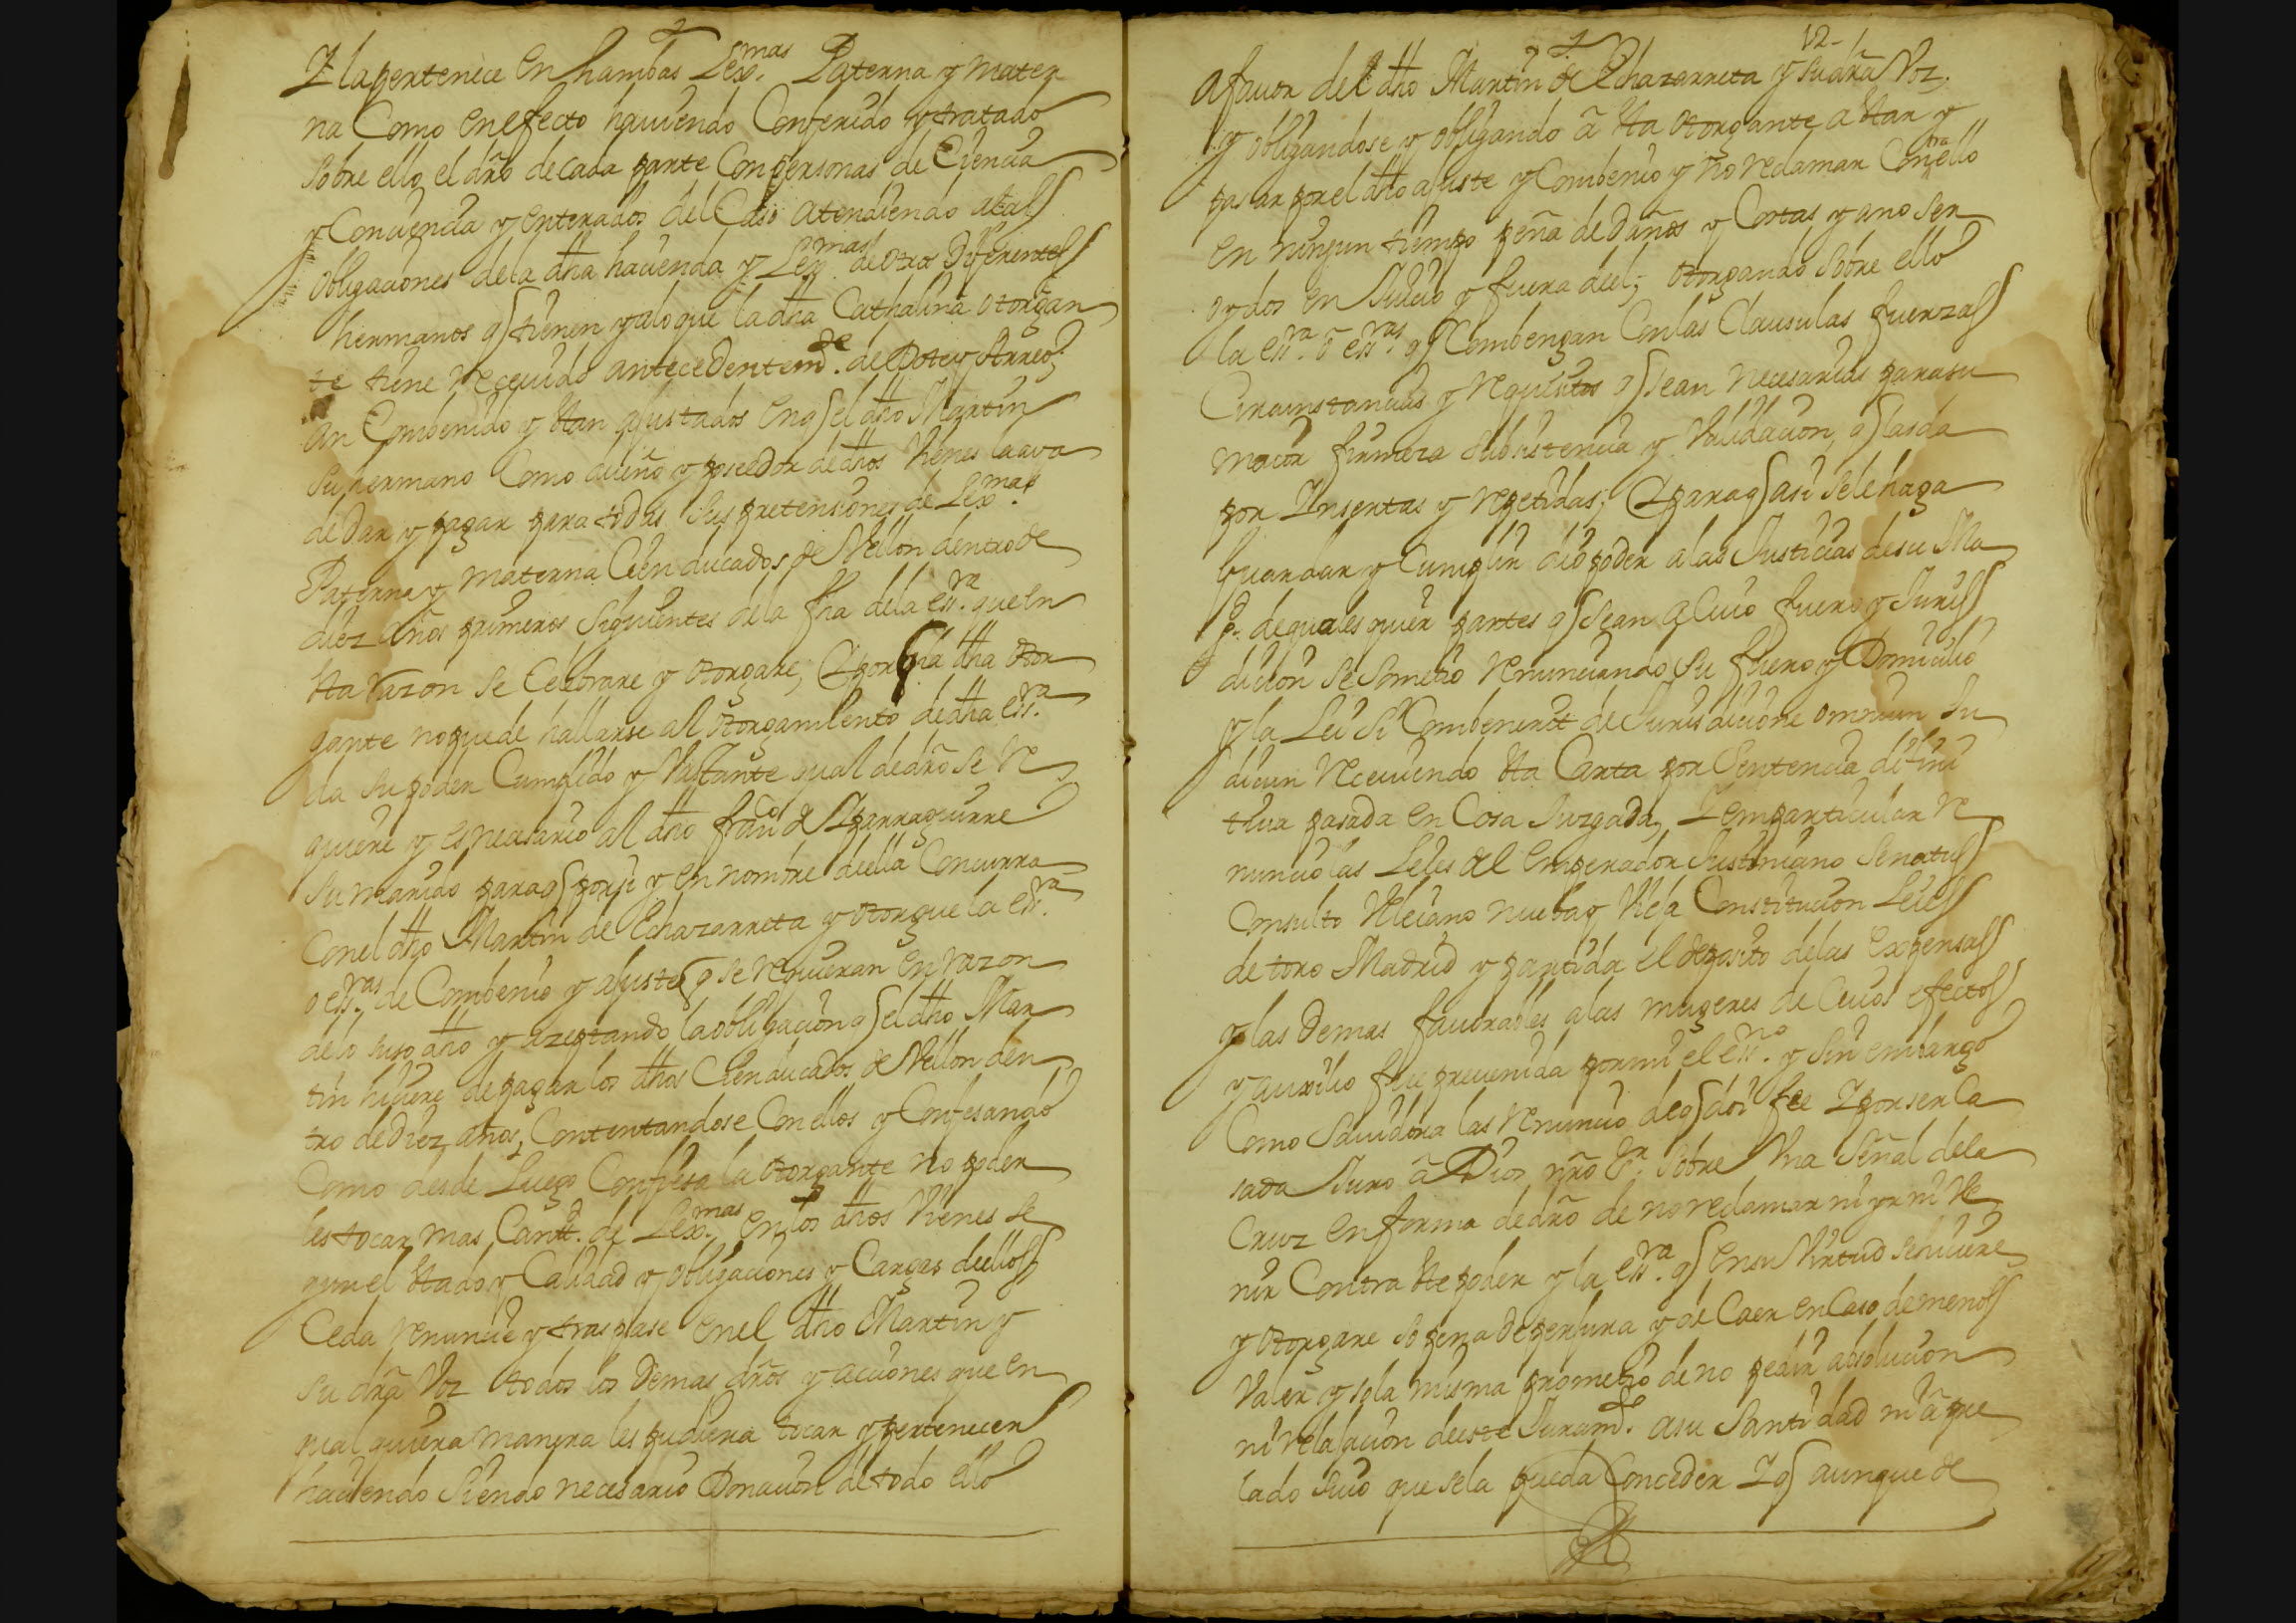 Y la pertenece en hambas Lex.mas Paterna y mater
na Como en efecto haviendo Conferido y tratado
sobre ello el dro de cada parte Con personas de Ciencia
y Conciencia y enterados del Caso atendiendo a las
obligaciones de la dha hacienda y Lex.mas de otros Diferentes
hermanos q tienen y a lo que la dha Cathalina otorgan
te tiene Recevido antecedentem.te de Dote y Arreo;
an Combenido y stan ajustados en q el dho Martin
su hermano Como dueño y poseedor de dhos Vienes la aya
de Dar y pagar para todas sus pretensiones de Lex.mas
Paterna y materna Cien ducados de Vellon dentro de
diez años primeros siguientes de la fha de la ess.ra que en
sta razon se Celebrare y otorgare, Y por q la dha otor
gante no puede hallarse al otorgamiento de dha ess.ra
da su poder Cumplido y Vastante qual de dro se Re
quiere y es necesario al dho fran.co de Yparraguirre
su marido para q por si y en nombre de ella Concurra
Con el dho Martin de Echazarreta y otorgue la ess.ra
o ess.ras de Combenio y ajuste q se requieran en razon
de lo suso dho y azeptando la obligacion q el dho Mar
tin hiciere de pagar los dhos Cien ducados de Vellon den
tro de Diez años, Contentandose Con ellos y Confesando
Como desde Luego Confiesa la otorgante no poder
les tocar mas Cantt.d de Lex.mas en los dhos Vienes se
gun el stado y Calidad y obligaciones y Cargas de ellos
Ceda renuncie y traspase en el dho Martin y
su dra Voz todos los Demas dros y acciones que en
qualquiera manera les pudiera tocar y pertenecer
haciendo siendo necesario Donacion de todo ello
12-
a favor del dho Martin de Echazarreta y su dra Voz,
y obligandose y obligando â sta otorgante a star y
pasar por el dho ajuste y Combenio y no reclamar Contra ello
en ningun tiempo pena de Daños y Costas y a no ser
oydos en Juicio y fuera del; otorgando sobre ello
la ess.ra ô ess.ras q Combengan Con las Clausulas fuerzas
Circunstancias y Requisitos q sean necesarias para su
maior firmeza subsistencia y Validacion, q las da
por Insertas y repetidas; Y para q asi se le haga
Guardar y Cumplir dio poder a las Justicias de su Ma
g.d de quales quier partes q sean a Cuio fuero y Juris
dicion se sometio Renunciando su fuero y Domicilio
y la Lei Si Combenerit de Jurisdicione omnium Ju
dicun Receviendo sta Carta por Sentencia difini
tiva pasada en Cosa Juzgada, Y en particular Re
nuncio las Leies del emperador Justiniano Senatus
Consulto Veleiano nueba y Vieja Constitucion Leies
de toro Madrid y partida el deposito de las expensas
y las Demas favorables a las mugeres de Cuios efectos
y auxilio fue prevenida por mi el ess.no y sin embargo
Como Savidora las Renuncio de q doi fee Y por ser Ca
sada Juro â Dios nro S.r sobre Vna Señal de la
Cruz en forma de dro de no reclamar ni yr ni Ve
nir Contra ste poder y la ess.ra q en su Virtud se hiciere
y otorgare so pena de perjura y de Caer en Caso de menos
Valer y so la misma prometio de no pedir absolucion
ni relajacion de este Juram.to a su Santidad ni â pre
lado suio que se la pueda Conceder Y q aunque de